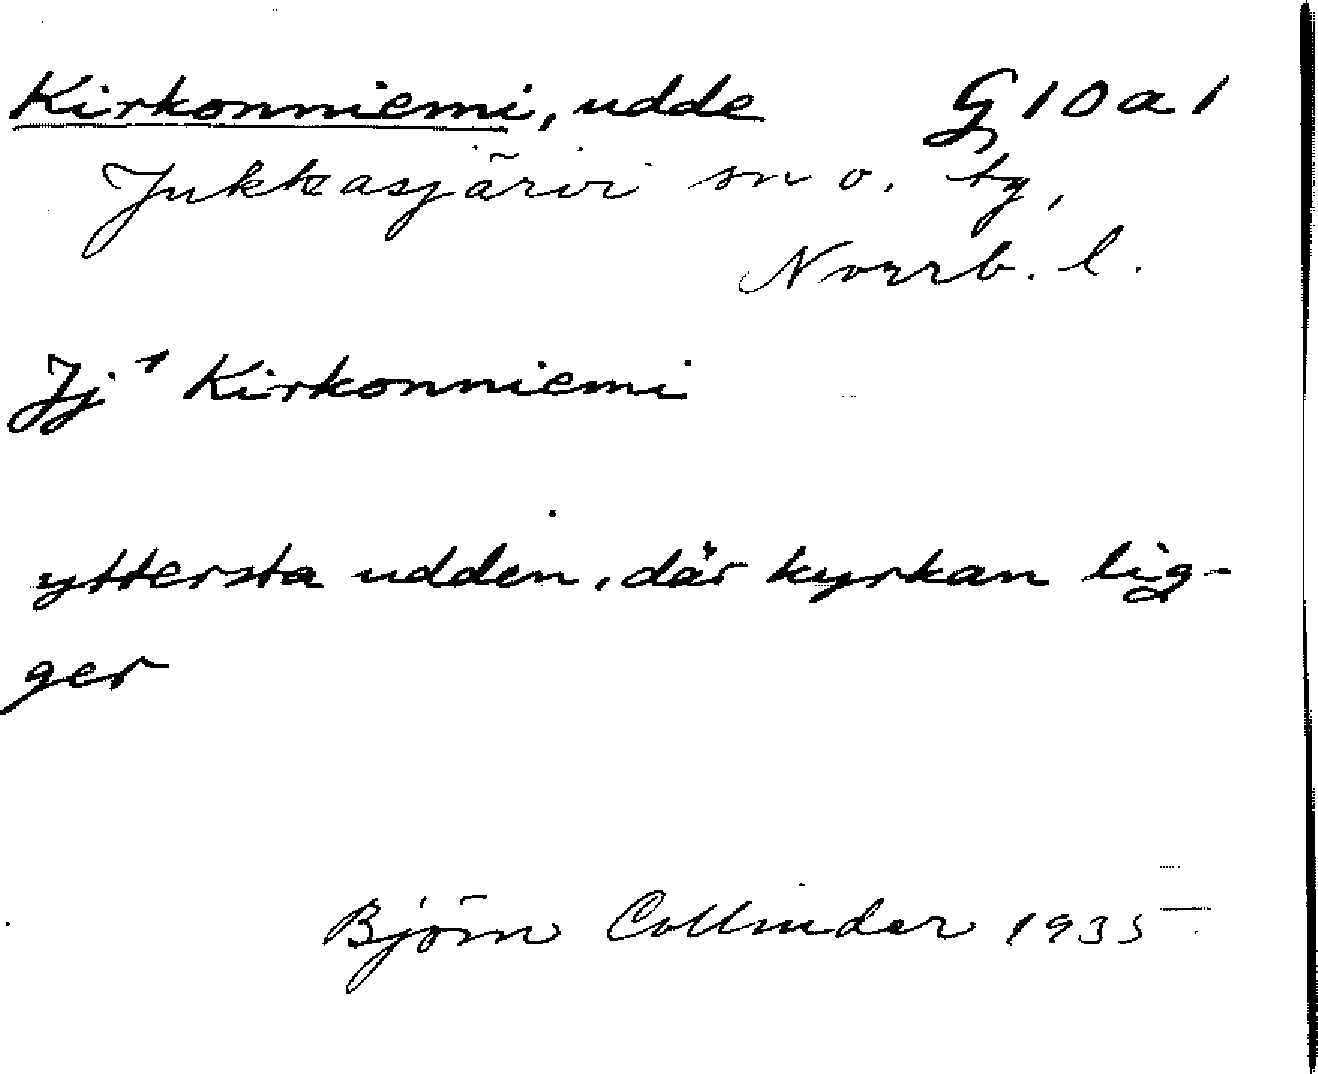 Kirkonniemi, udde G10a1
Jukkasjärvi sn o. tg,
Norrb. l.
Jj¹ Kirkonniemi
yttersta udden, där kyrkan lig-
ger
Björn Collinder 1935